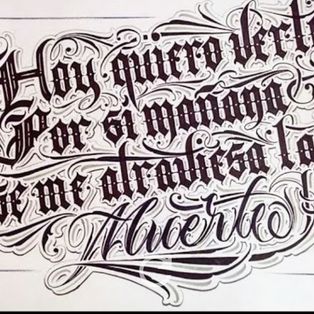 Hoy quiero vert
Por si mañana
se me atraviesa la
Muerte